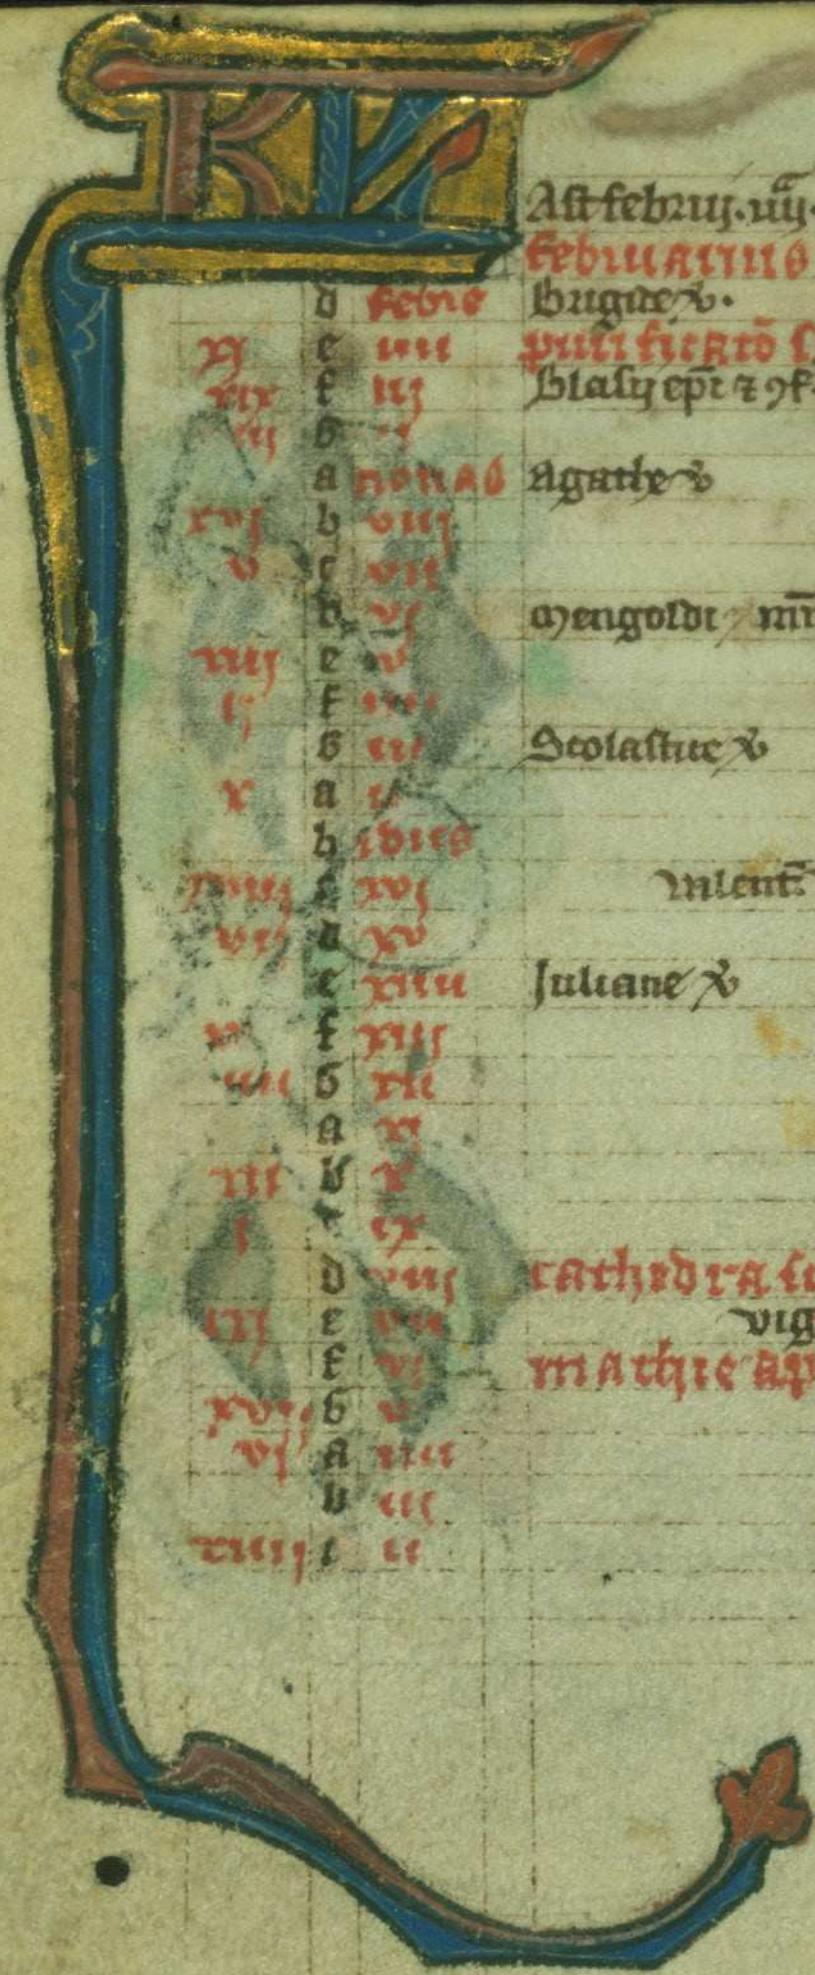 KL
Ast februy. iiij.
februarius
d febrs Brigide v.
xj e iiii purificatō s
xix f iij Blasij epī ⁊ ꝯf.
iij g ij
a nonas Agathe v
xvj b viij
v c vii
d vj Mengoldi mr
xiij e v
ij f iiij
g iii Scolastice v
x a ii
b idus
xviij c xvj valent
vij d xv
e xiiii Juliane v
xv f xiij
iiii g xii
a xj
xii b x
j c ix
d viij cathedra s
ix e vii vig
f vj mathie ap
xvij g v
vj a iiii
b iij
xiiij c ii